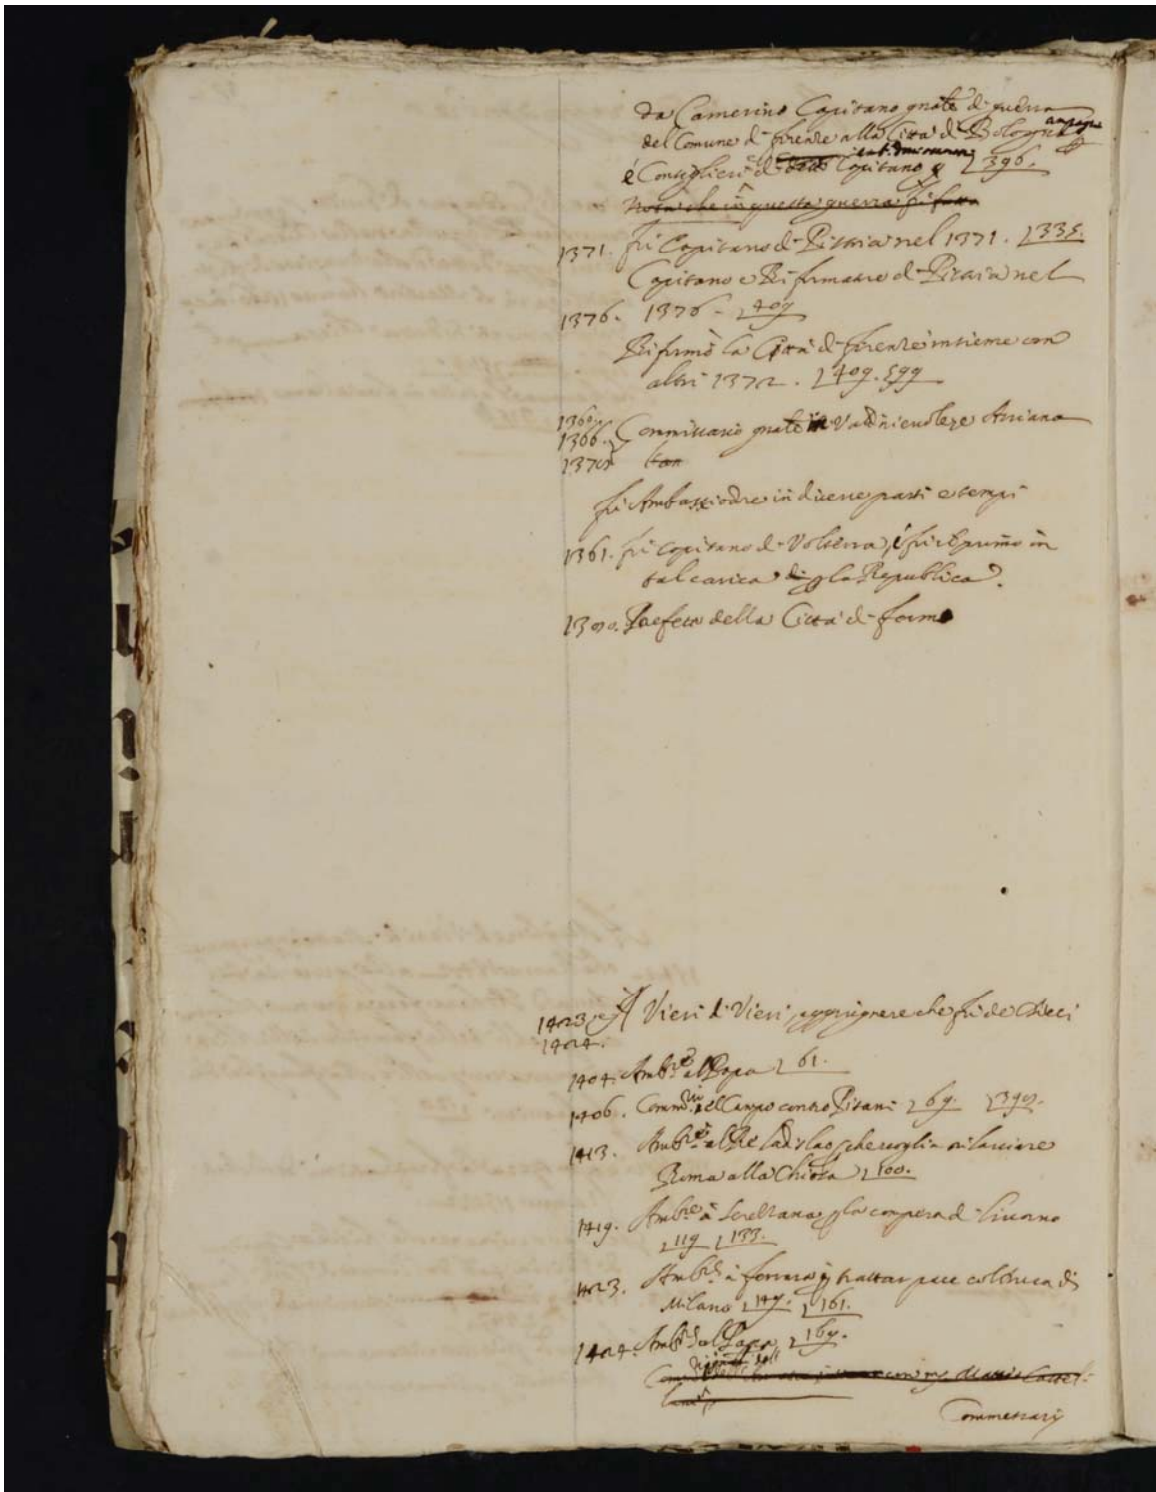 da Camerino Capitano gnãle di guerra
del Comune di firenze alla Città di Bologna
é Consiglieri di detto Capitano 396.
Nota che in questa guerra fù fatto
1371. fù Capitano di Pistoia nel 1371. 335.
Capitano e Riformatore di Pistoia nel
1376. 1376 - 409
Riformò la Città di firenze insieme con
altri 1372. 409. 599
1366. Commissario gnãle in Valdinievole e Arriana
fù Ambasciadre in diverse parti e tempi
1361. fù Capitano di Volterra, é fù il primo in
tal carica p la Republica.
Prefetto della Città di
1423. e A Vieri di Vieri, che fù de Dieci
1424.
1404. Ambre al Papa 61.
1406. Commrio nel Campo contro Pisani 69.
1413. Ambre al Re Ladislao, che voglia rilasciare
Roma alla Chiesa 100.
1419. Ambre à Serezzana p la compera di Livorno
119 133.
1423. Ambre à ferrara p trattar pace col Duca di
Milano 149. 161.
1424. Ambre al Papa 169.
con Matteo Castel-
lani
Commessary